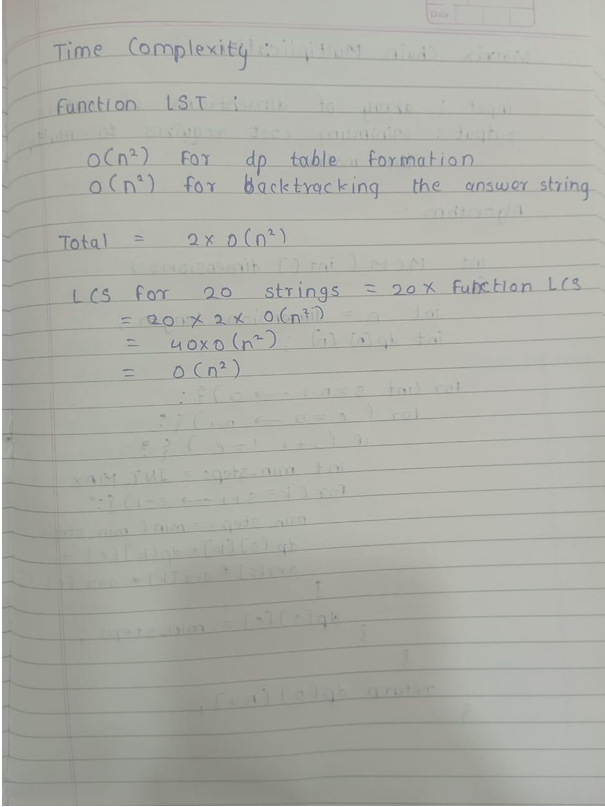 Date
Time Complexity :
Function LST :
O(n²) For dp table formation
O(n²) for backtracking the answer string
Total = 2 x O(n²)
LCS for 20 strings = 20 x Function LCS
= 20 x 2 x O(n²)
= 40 x O(n²)
= O(n²)